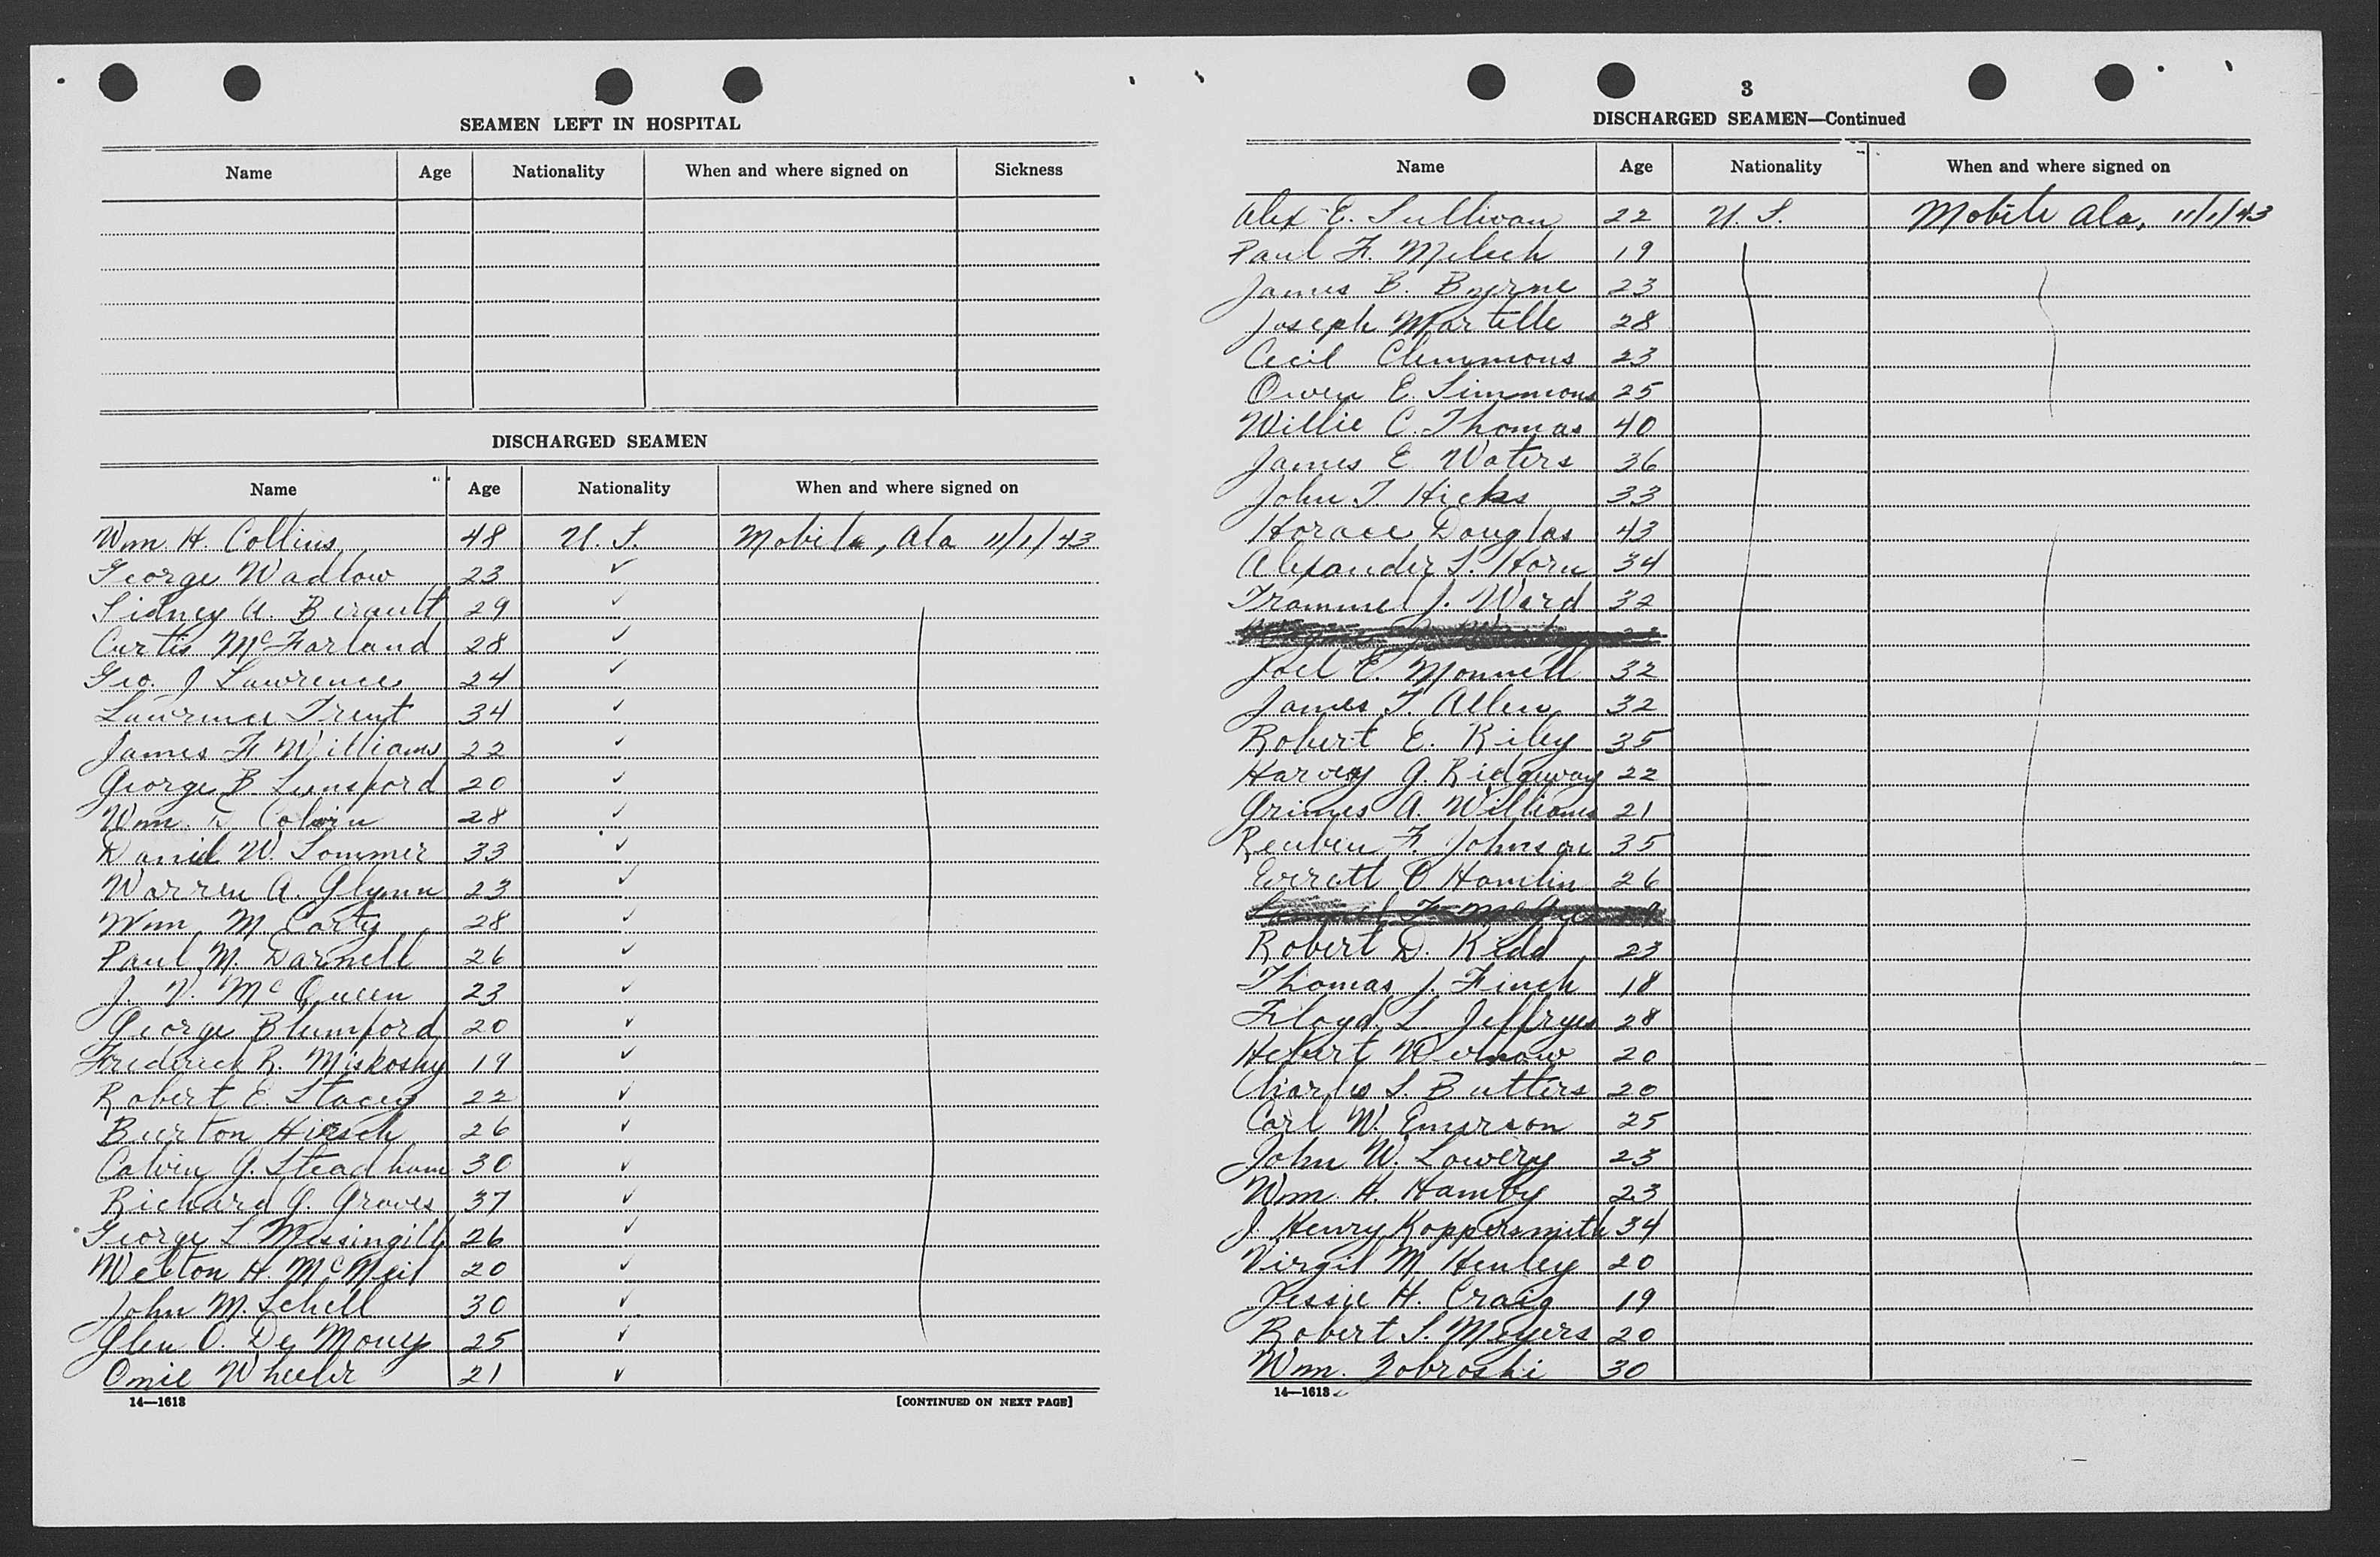 SEAMEN LEFT IN HOSPITAL
Name Age Nationality When and where signed on Sickness
DISCHARGED SEAMEN
Name Age Nationality When and where signed on
Wm H. Collins 48 U.S. Mobile, Ala 11/1/43
George Wadlow 23 ✓
Sidney A. Berault 29 ✓
Curtis McFarland 28 ✓
Geo. J Lawrence 24 ✓
Lawrence Trent 34 ✓
James F. Williams 22 ✓
George B. Lunsford 20 ✓
Wm. Colvin 28 ✓
Daniel W. Sommer 33 ✓
Warren A. Glynn 23 ✓
Wm M Carty 28 ✓
Paul M. Darnell 26 ✓
J. V. McQueen 23 ✓
George Blumford 20 ✓
Frederick R. Miskosky 19 ✓
Robert E. Stacey 22 ✓
Burton Hirsch 26 ✓
Calvin G. Steadham 30 ✓
Richard G. Groves 37 ✓
George L Messingill 26 ✓
Welton H. McNeil 20 ✓
John M. Schell 30 ✓
Glen O. De Mouy 25 ✓
Omie Wheeler 21 ✓
14—1613 [CONTINUED ON NEXT PAGE]
3
DISCHARGED SEAMEN—Continued
Name Age Nationality When and where signed on
Alex E. Sullivan 22 U.S. Mobile Ala, 11/1/43
Paul F. Melech 19
James B. Byrne 23
Joseph Martelle 28
Cecil Clemmons 23
Owen E. Simmons 25
Willie C. Thomas 40
James E Waters 36
John T. Hicks 33
Horace Douglas 43
Alexander S. Horn 34
Trammel J. Ward 32
Joel E. Monnell 32
James T. Allen 32
Robert E. Riley 35
Harvey G. Ridgeway 22
Grimes A. Williams 21
Reuben F. Johnson 35
Everett O Hamlin 26
Robert D. Kidd 23
Thomas J. Finch 18
Floyd L. Jeffryes 28
20
Charles S. Butters 20
Carl W. Emerson 25
John W. Lowery 23
Wm. H. Hamby 23
J. Henry Koppersmith 34
Virgil M. Henley 20
Jessie H. Craig 19
Robert S. Meyers 20
Wm. Zobroski 30
14—1613